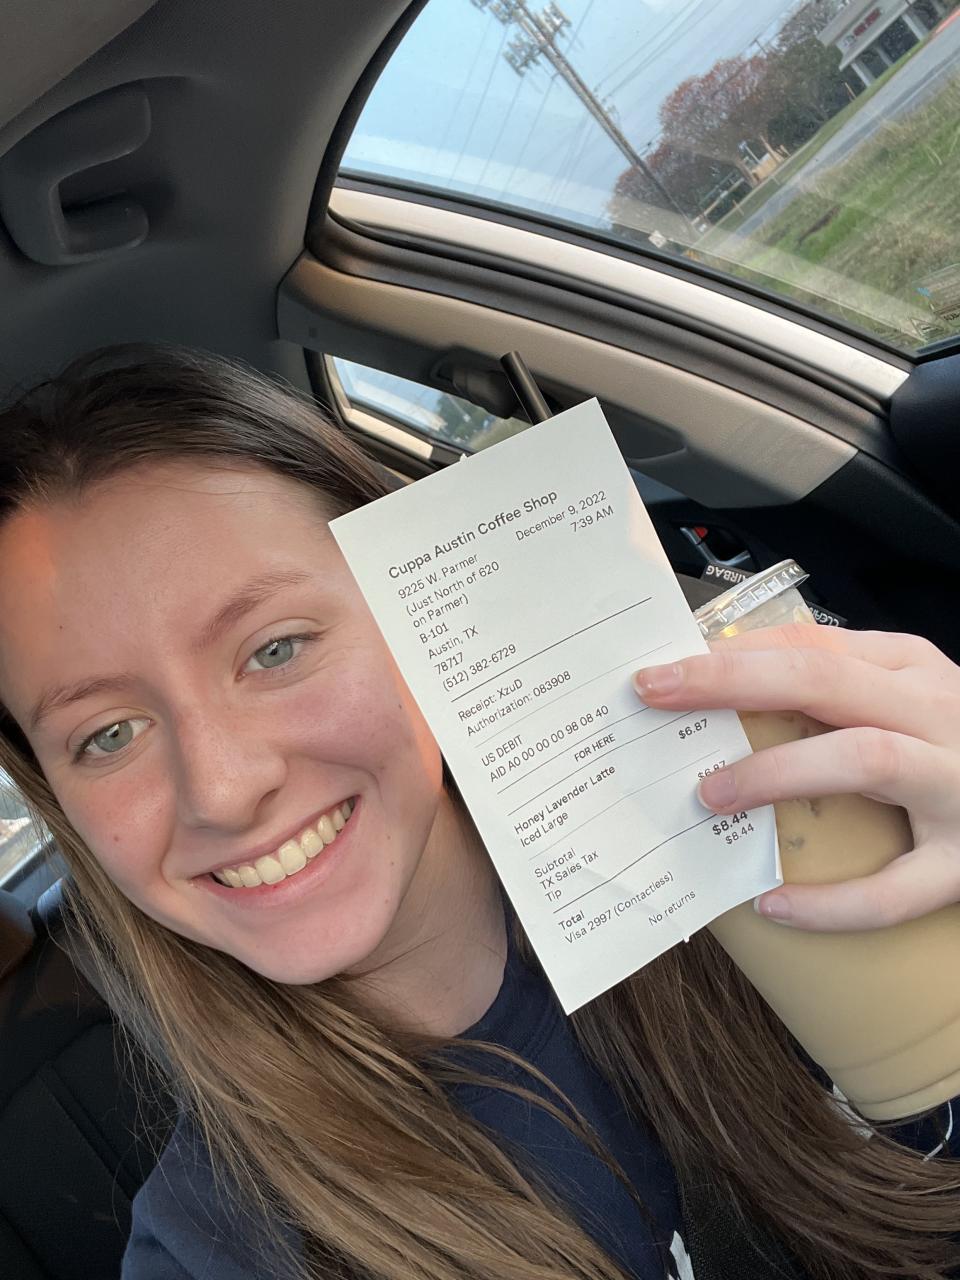 Cuppa Austin Coffee Shop
9225 W. Parmer December 9, 2022
(Just North of 620 7:39 AM
on Parmer)
B-101
Austin, TX
78717
(512) 382-6729
Receipt: XzuD
Authorization: 083908
US DEBIT
AID A0 00 00 00 98 08 40
FOR HERE
Honey Lavender Latte $6.87
Iced Large
Subtotal $6.87
TX Sales Tax
Tip
Total $8.44
Visa 2997 (Contactless) $8.44
No returns
AIRBAG